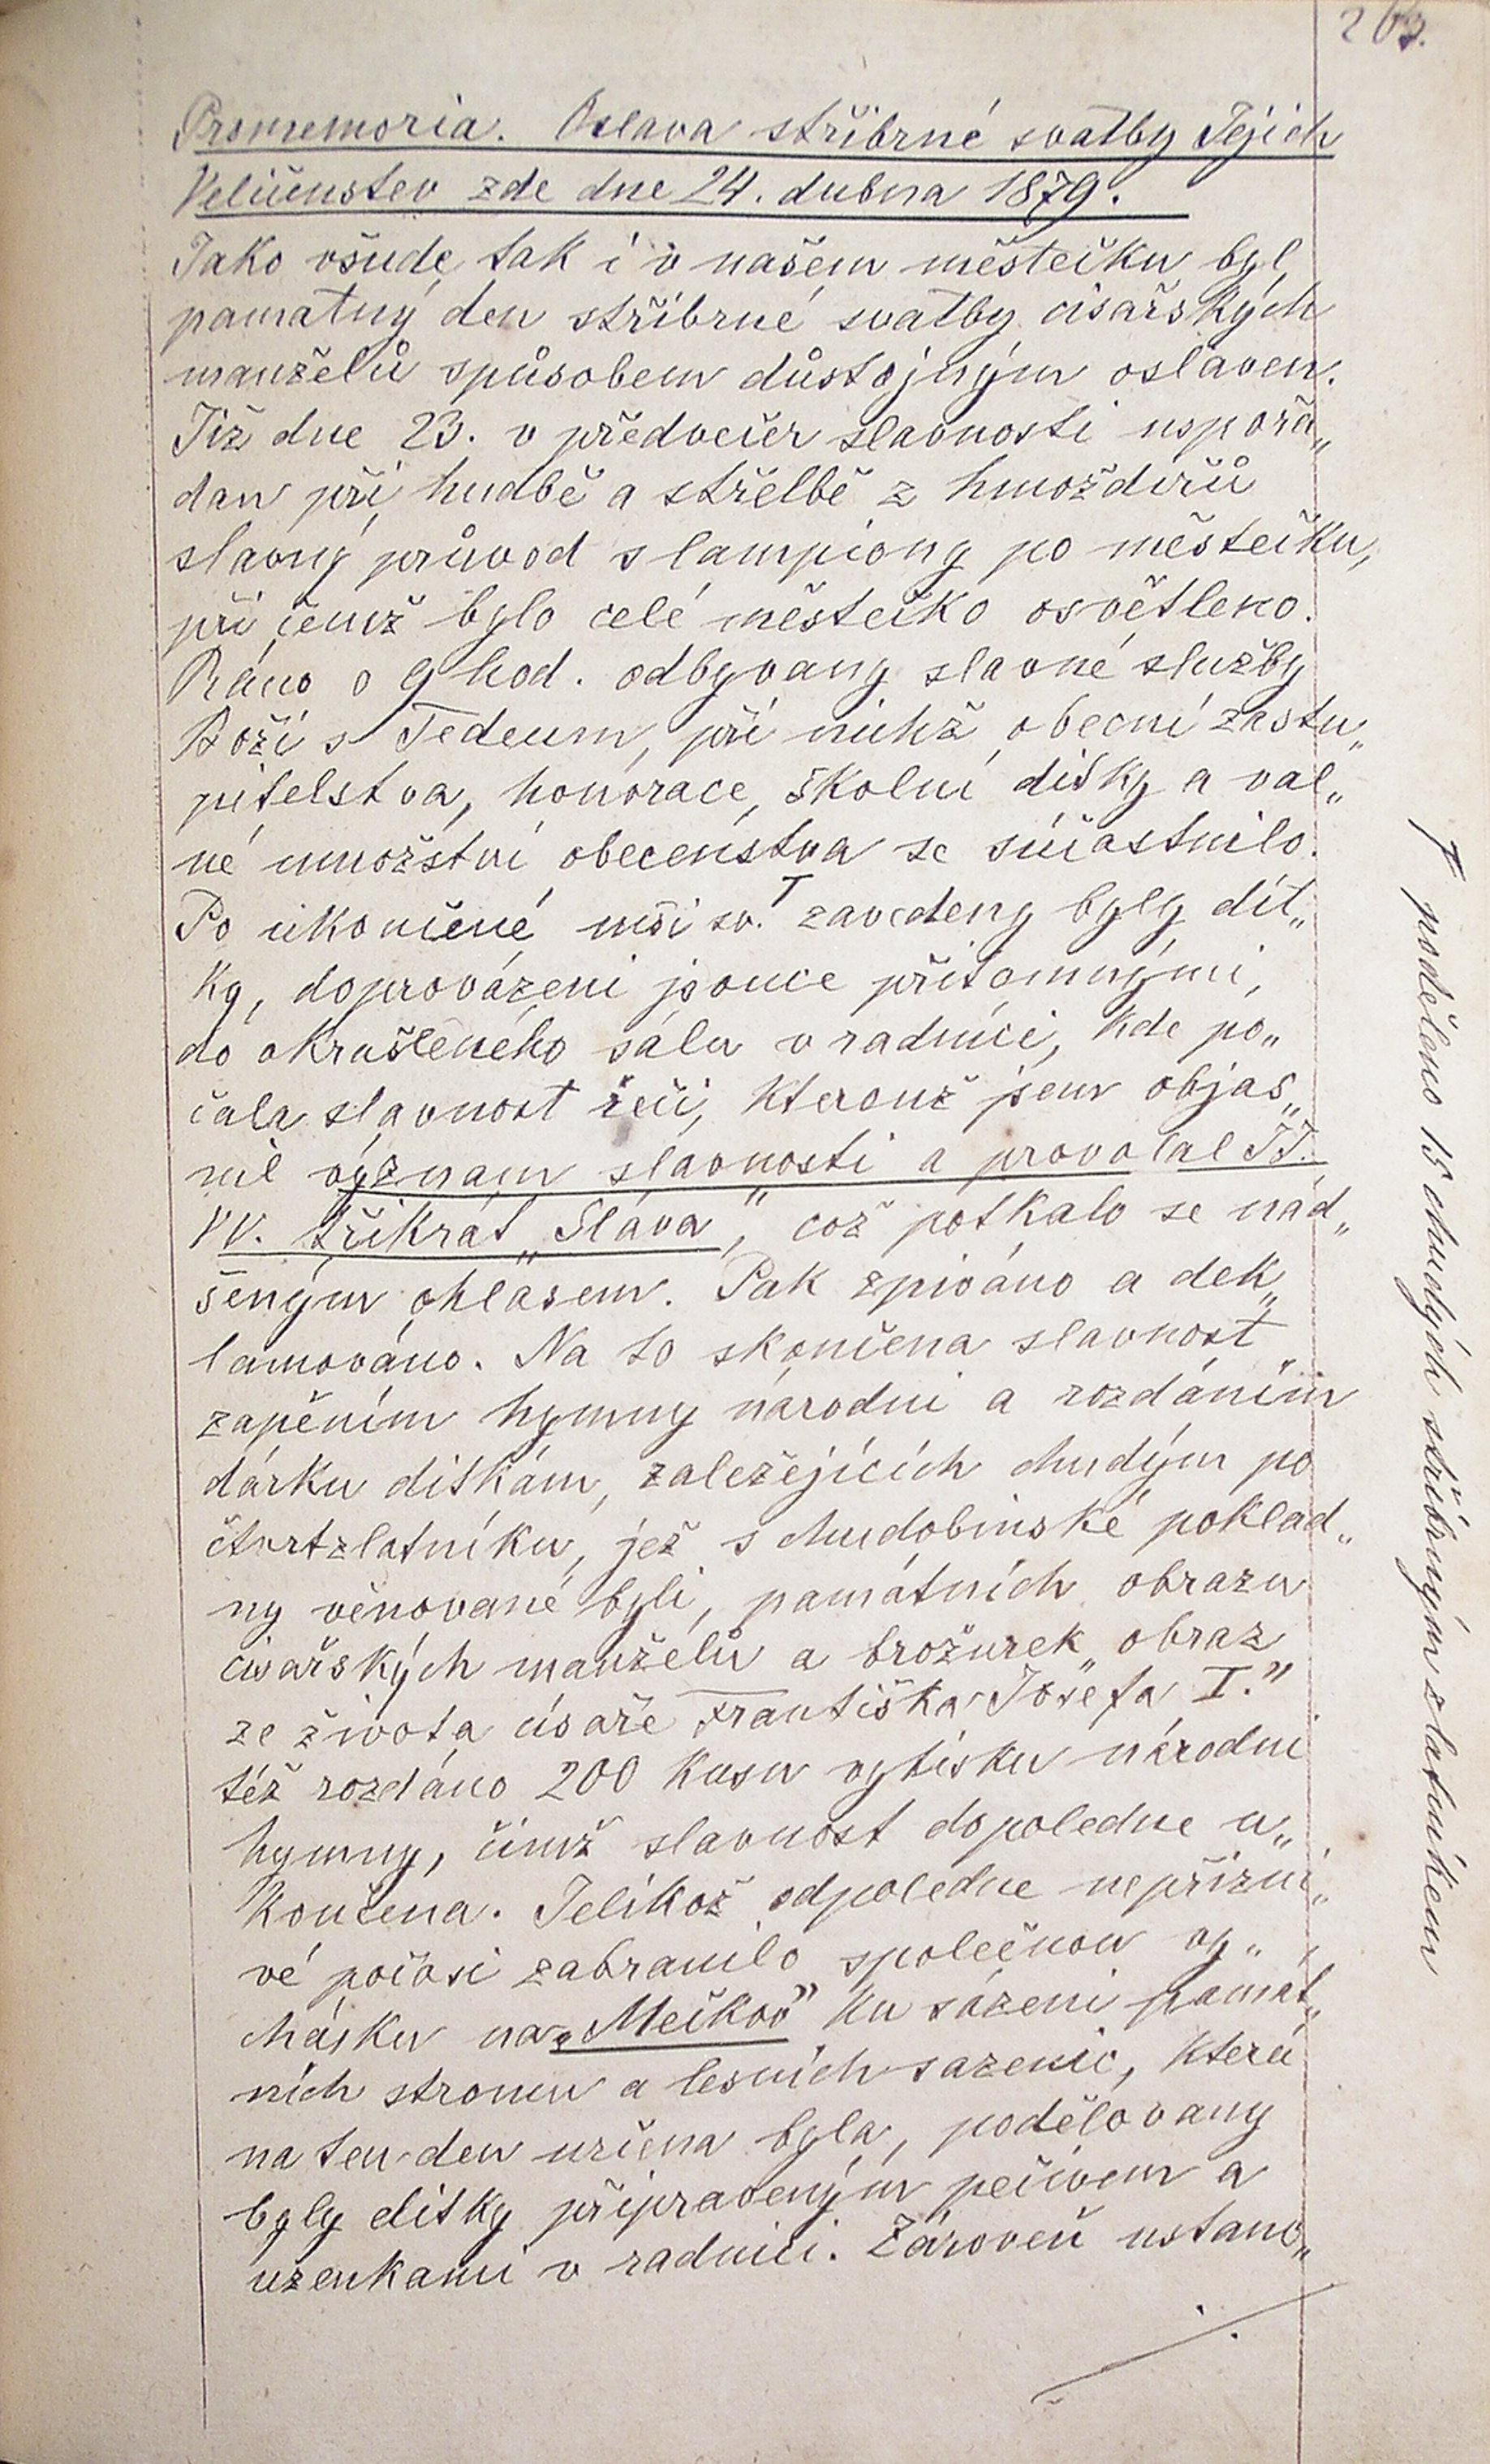 Promemoria. Oslava stříbrné svatby Jejich
Veličenstev zde dne 24. dubna 1879.
Jako všude, tak i v našem městečku byl
pamatný den stříbrné svatby císařských
manželů spůsobem důstojným oslaven.
Již dne 23. v předvečer slavnosti uspořá„
dan při hudbě a střelbě z hmoždířů
slavný průvod s lampiony po městečku,
při čemž bylo celé městečko osvětleno.
Ráno o 9 hod. odbyvany slavné služby
Boží s Tedeum, při nichž obecní zastu„
pitelstva, honorace, školní dítky a val„
né množství obecenstva se súčastnilo.
Po ukončené mši sv. ┬ zavedeny byly dít„
ky, doprovázeni jsouce přítomnými,
do okrašleného sálu v radnici, kde po„
čala slavnost řečí, kterouž jsem objas„
nil význam slavnosti a provolal JJ.
VV. třikrát „Sláva“, což potkalo se nad„
šeným ohlasem. Pak zpíváno a dek„
lamováno. Na to skončena slavnost
zapěním hymny národní a rozdáním
dárku dítkám, zaležejících chudým po
čtvrtzlatníku, jež s chudobinské poklad„
ny věnované byli, památních obrazu
císařských manželů a brožurek „obraz
ze života císaře Františka Josefa I.“
též rozdáno 200 kusu vytisku národní
hymny, čímž slavnost dopoledne u„
končena. Jelikož odpoledne nepřízni„
vé počasí zabranilo společnou vy„
cházku na „Mečkov“ ku sázení památ„
ních stromu a lesních sazenic, která
na ten den určena byla, podělovany
byly dítky připraveným pečivem a
uzenkami v radnici. Zároveň ustano„
./.
┬ poděleno 15 chudých stříbrným zlatníkem